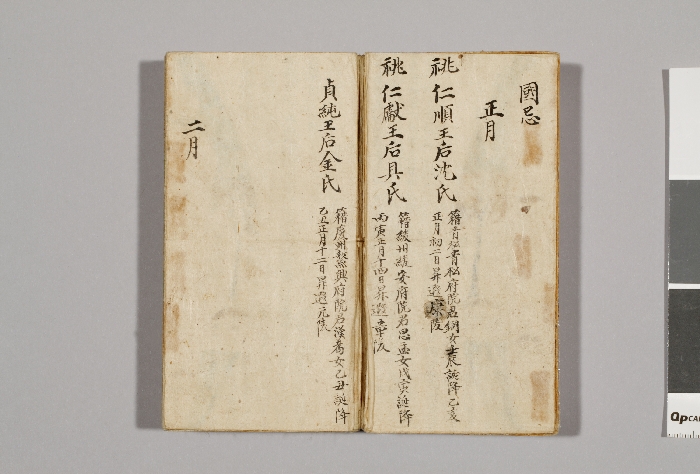 國忌
正月
祧 仁順王后沈氏
籍青松青松府院君鋼女壬辰誕降乙亥
正月初二日昇遐康陵
祧 仁獻王后具氏
籍綾州綾安府院君思孟女戊寅誕降
丙寅正月十四日昇遐章陵
貞純王后金氏
籍慶州鰲興府院君漢耈女乙丑誕降
乙丑正月十二日昇遐元陵
二月
QPCA